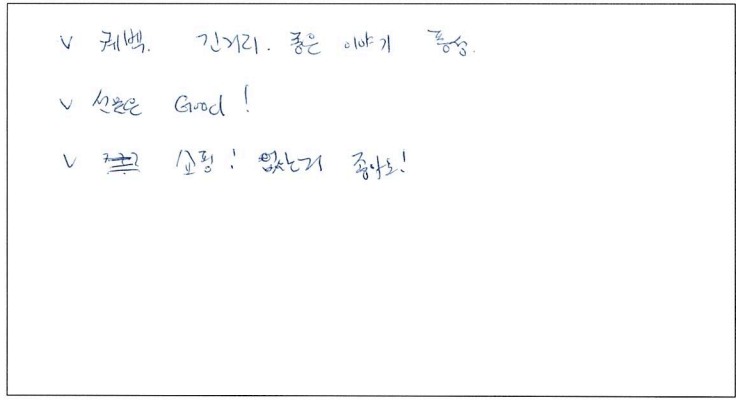 ∨ 퀘벡. 긴거리. 좋은 이야기 풍성.
∨ 선물은 Good!
∨ 쇼핑! 없는거 좋아요!